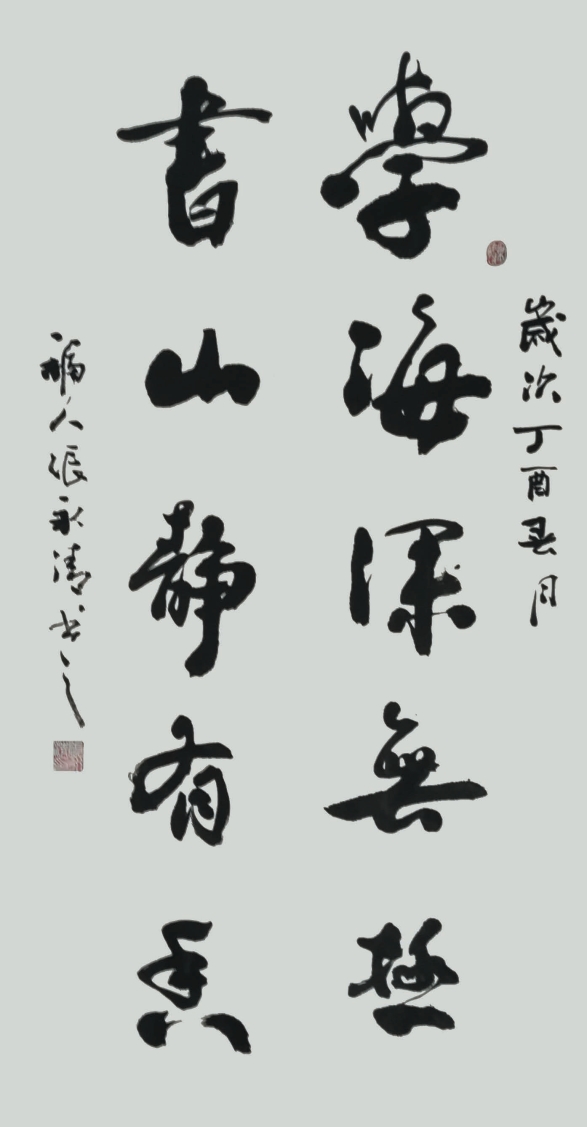 歲次丁酉春月
學海深無極
書山靜有香
福人張永清书之